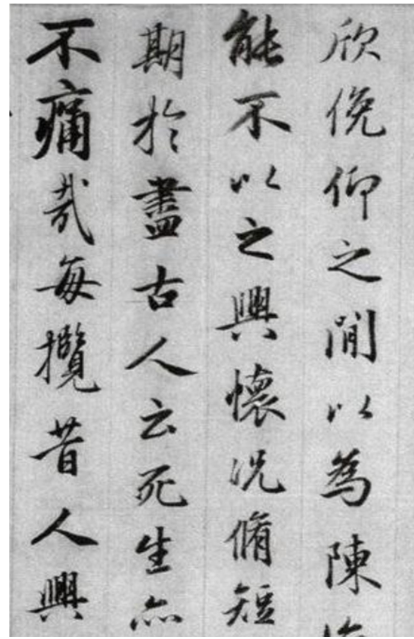 欣俛仰之閒以為陳
能不以之興懷况脩短
期於盡古人云死生亦
不痛哉每攬昔人興